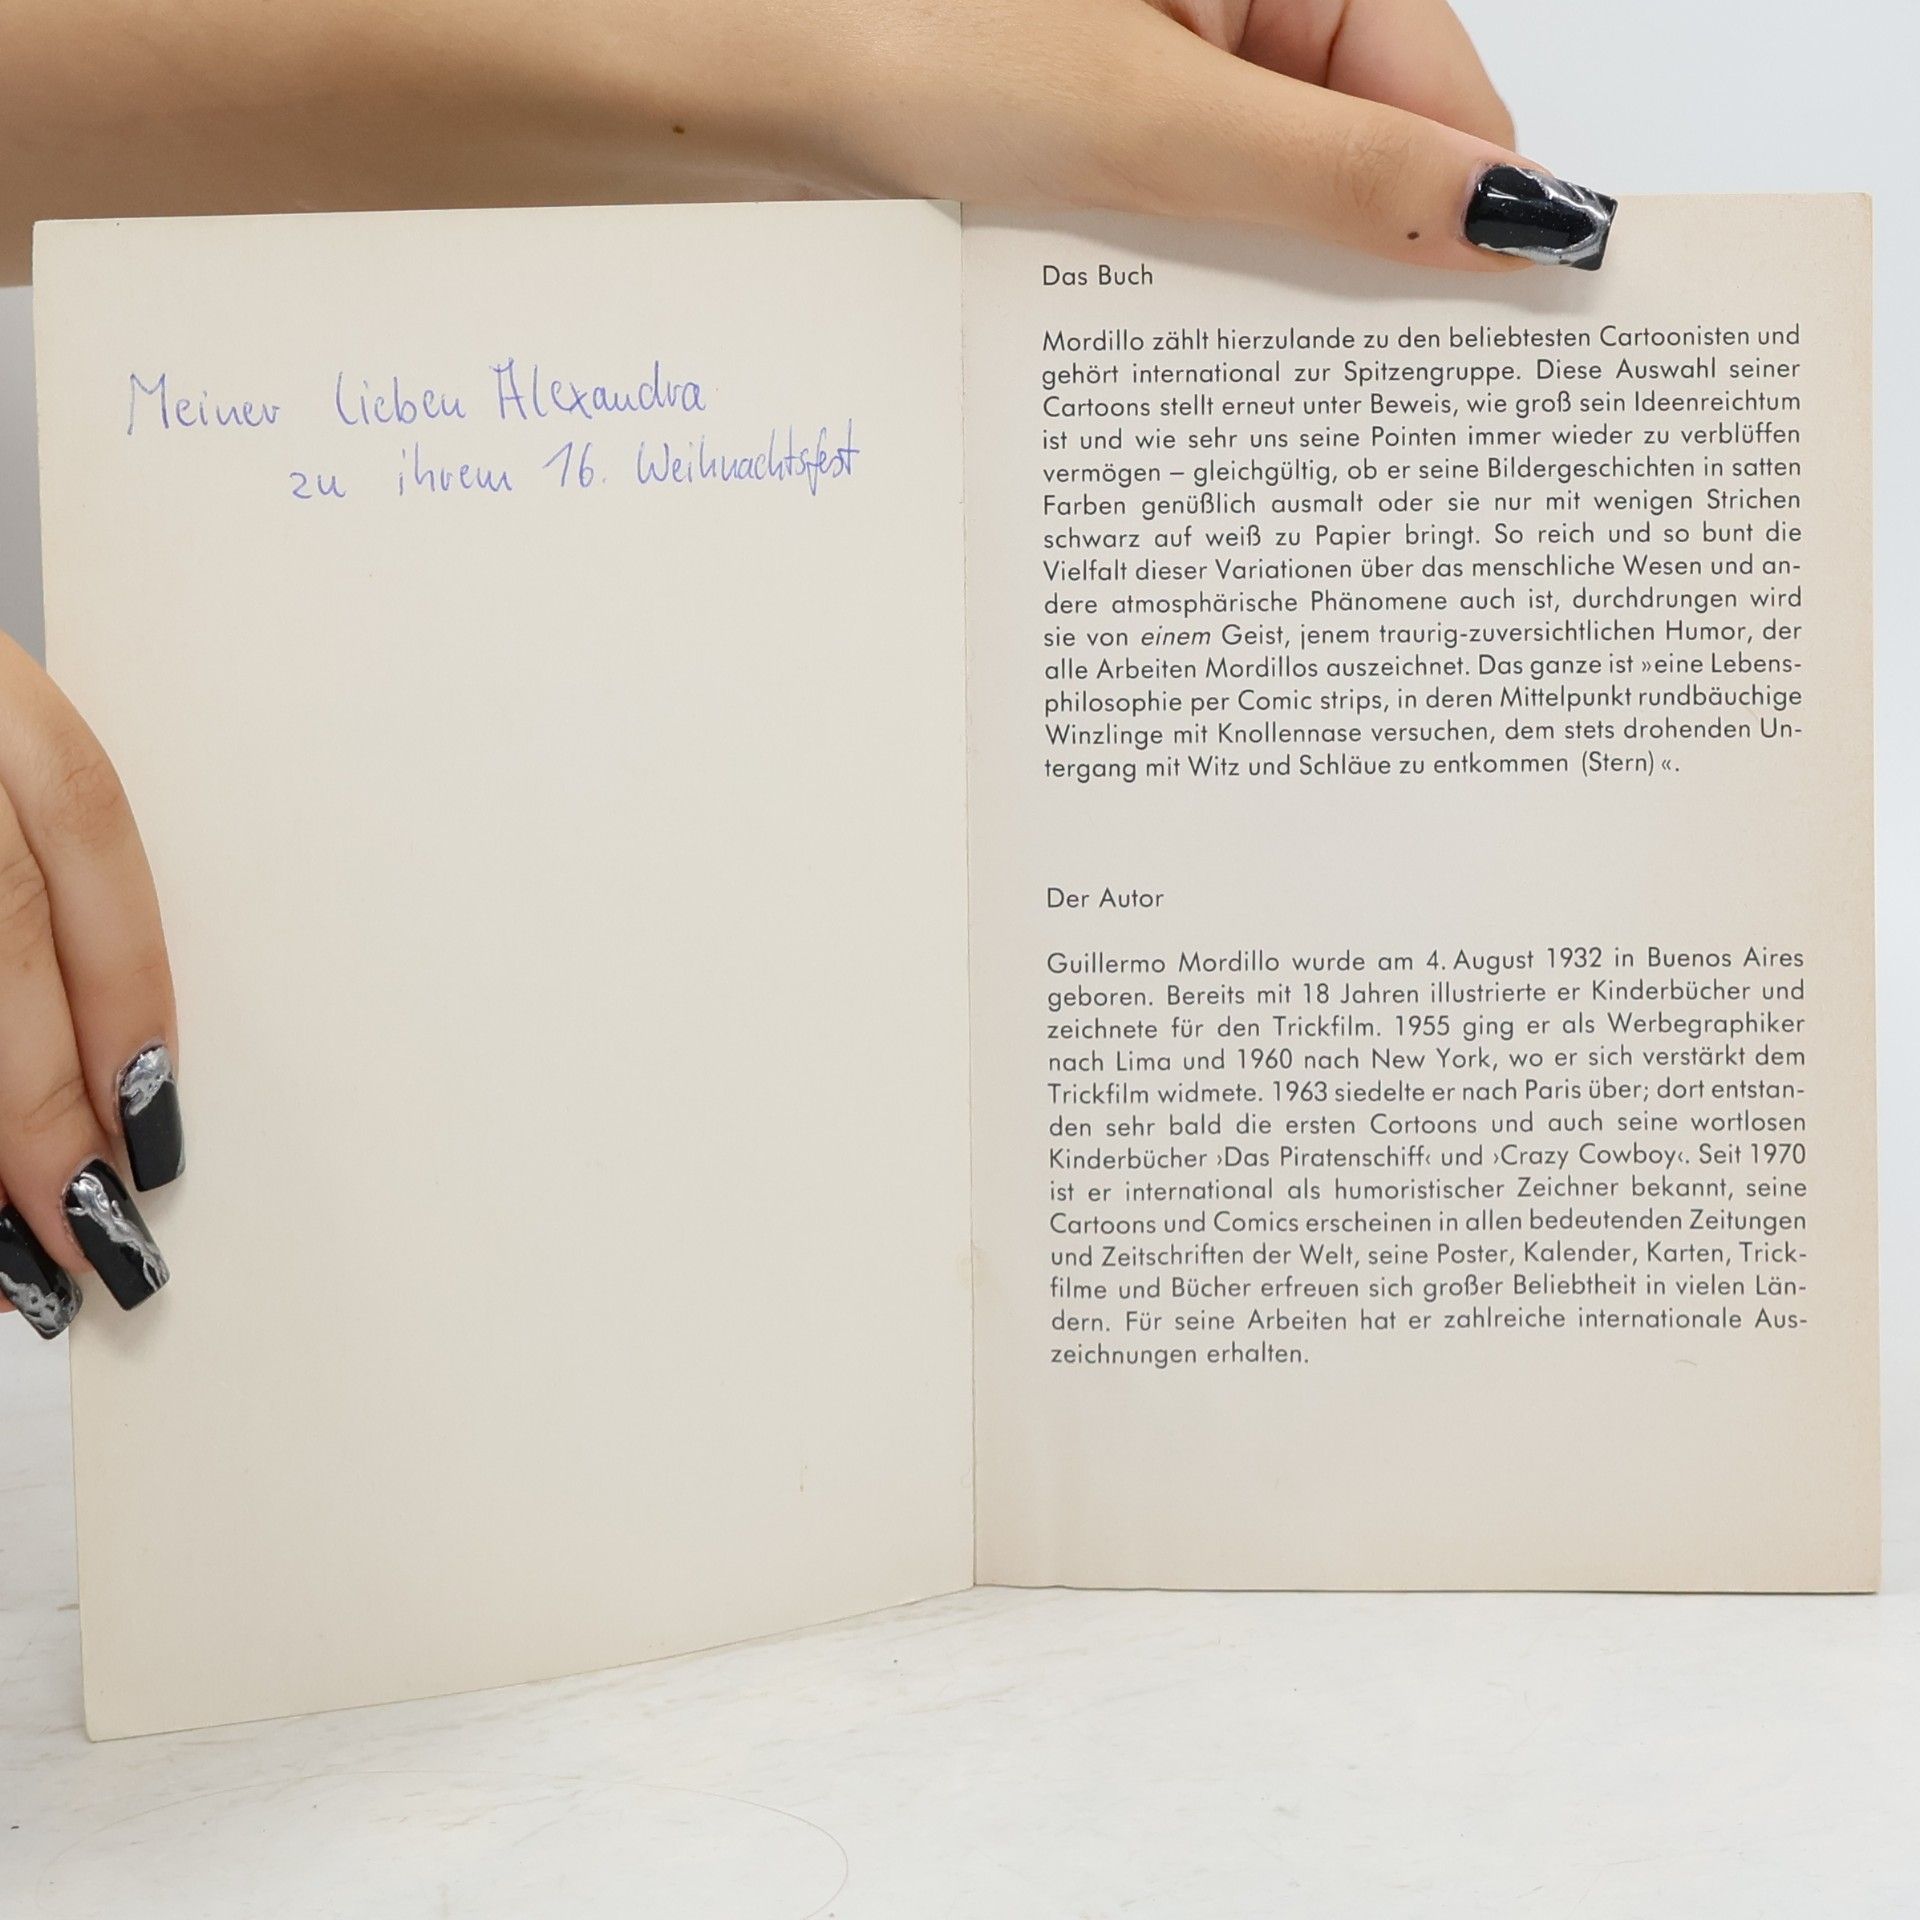 Meiner lieben Alexandra
zu ihrem 16. Weihnachtsfest
Das Buch
Mordillo zählt hierzulande zu den beliebtesten Cartoonisten und
gehört international zur Spitzengruppe. Diese Auswahl seiner
Cartoons stellt erneut unter Beweis, wie groß sein Ideenreichtum
ist und wie sehr uns seine Pointen immer wieder zu verblüffen
vermögen – gleichgültig, ob er seine Bildergeschichten in satten
Farben genüßlich ausmalt oder sie nur mit wenigen Strichen
schwarz auf weiß zu Papier bringt. So reich und so bunt die
Vielfalt dieser Variationen über das menschliche Wesen und an-
dere atmosphärische Phänomene auch ist, durchdrungen wird
sie von einem Geist, jenem traurig-zuversichtlichen Humor, der
alle Arbeiten Mordillos auszeichnet. Das ganze ist »eine Lebens-
philosophie per Comic strips, in deren Mittelpunkt rundbäuchige
Winzlinge mit Knollennase versuchen, dem stets drohenden Un-
tergang mit Witz und Schläue zu entkommen (Stern) «.
Der Autor
Guillermo Mordillo wurde am 4. August 1932 in Buenos Aires
geboren. Bereits mit 18 Jahren illustrierte er Kinderbücher und
zeichnete für den Trickfilm. 1955 ging er als Werbegraphiker
nach Lima und 1960 nach New York, wo er sich verstärkt dem
Trickfilm widmete. 1963 siedelte er nach Paris über; dort entstan-
den sehr bald die ersten Cortoons und auch seine wortlosen
Kinderbücher ›Das Piratenschiff‹ und ›Crazy Cowboy‹. Seit 1970
ist er international als humoristischer Zeichner bekannt, seine
Cartoons und Comics erscheinen in allen bedeutenden Zeitungen
und Zeitschriften der Welt, seine Poster, Kalender, Karten, Trick-
filme und Bücher erfreuen sich großer Beliebtheit in vielen Län-
dern. Für seine Arbeiten hat er zahlreiche internationale Aus-
zeichnungen erhalten.